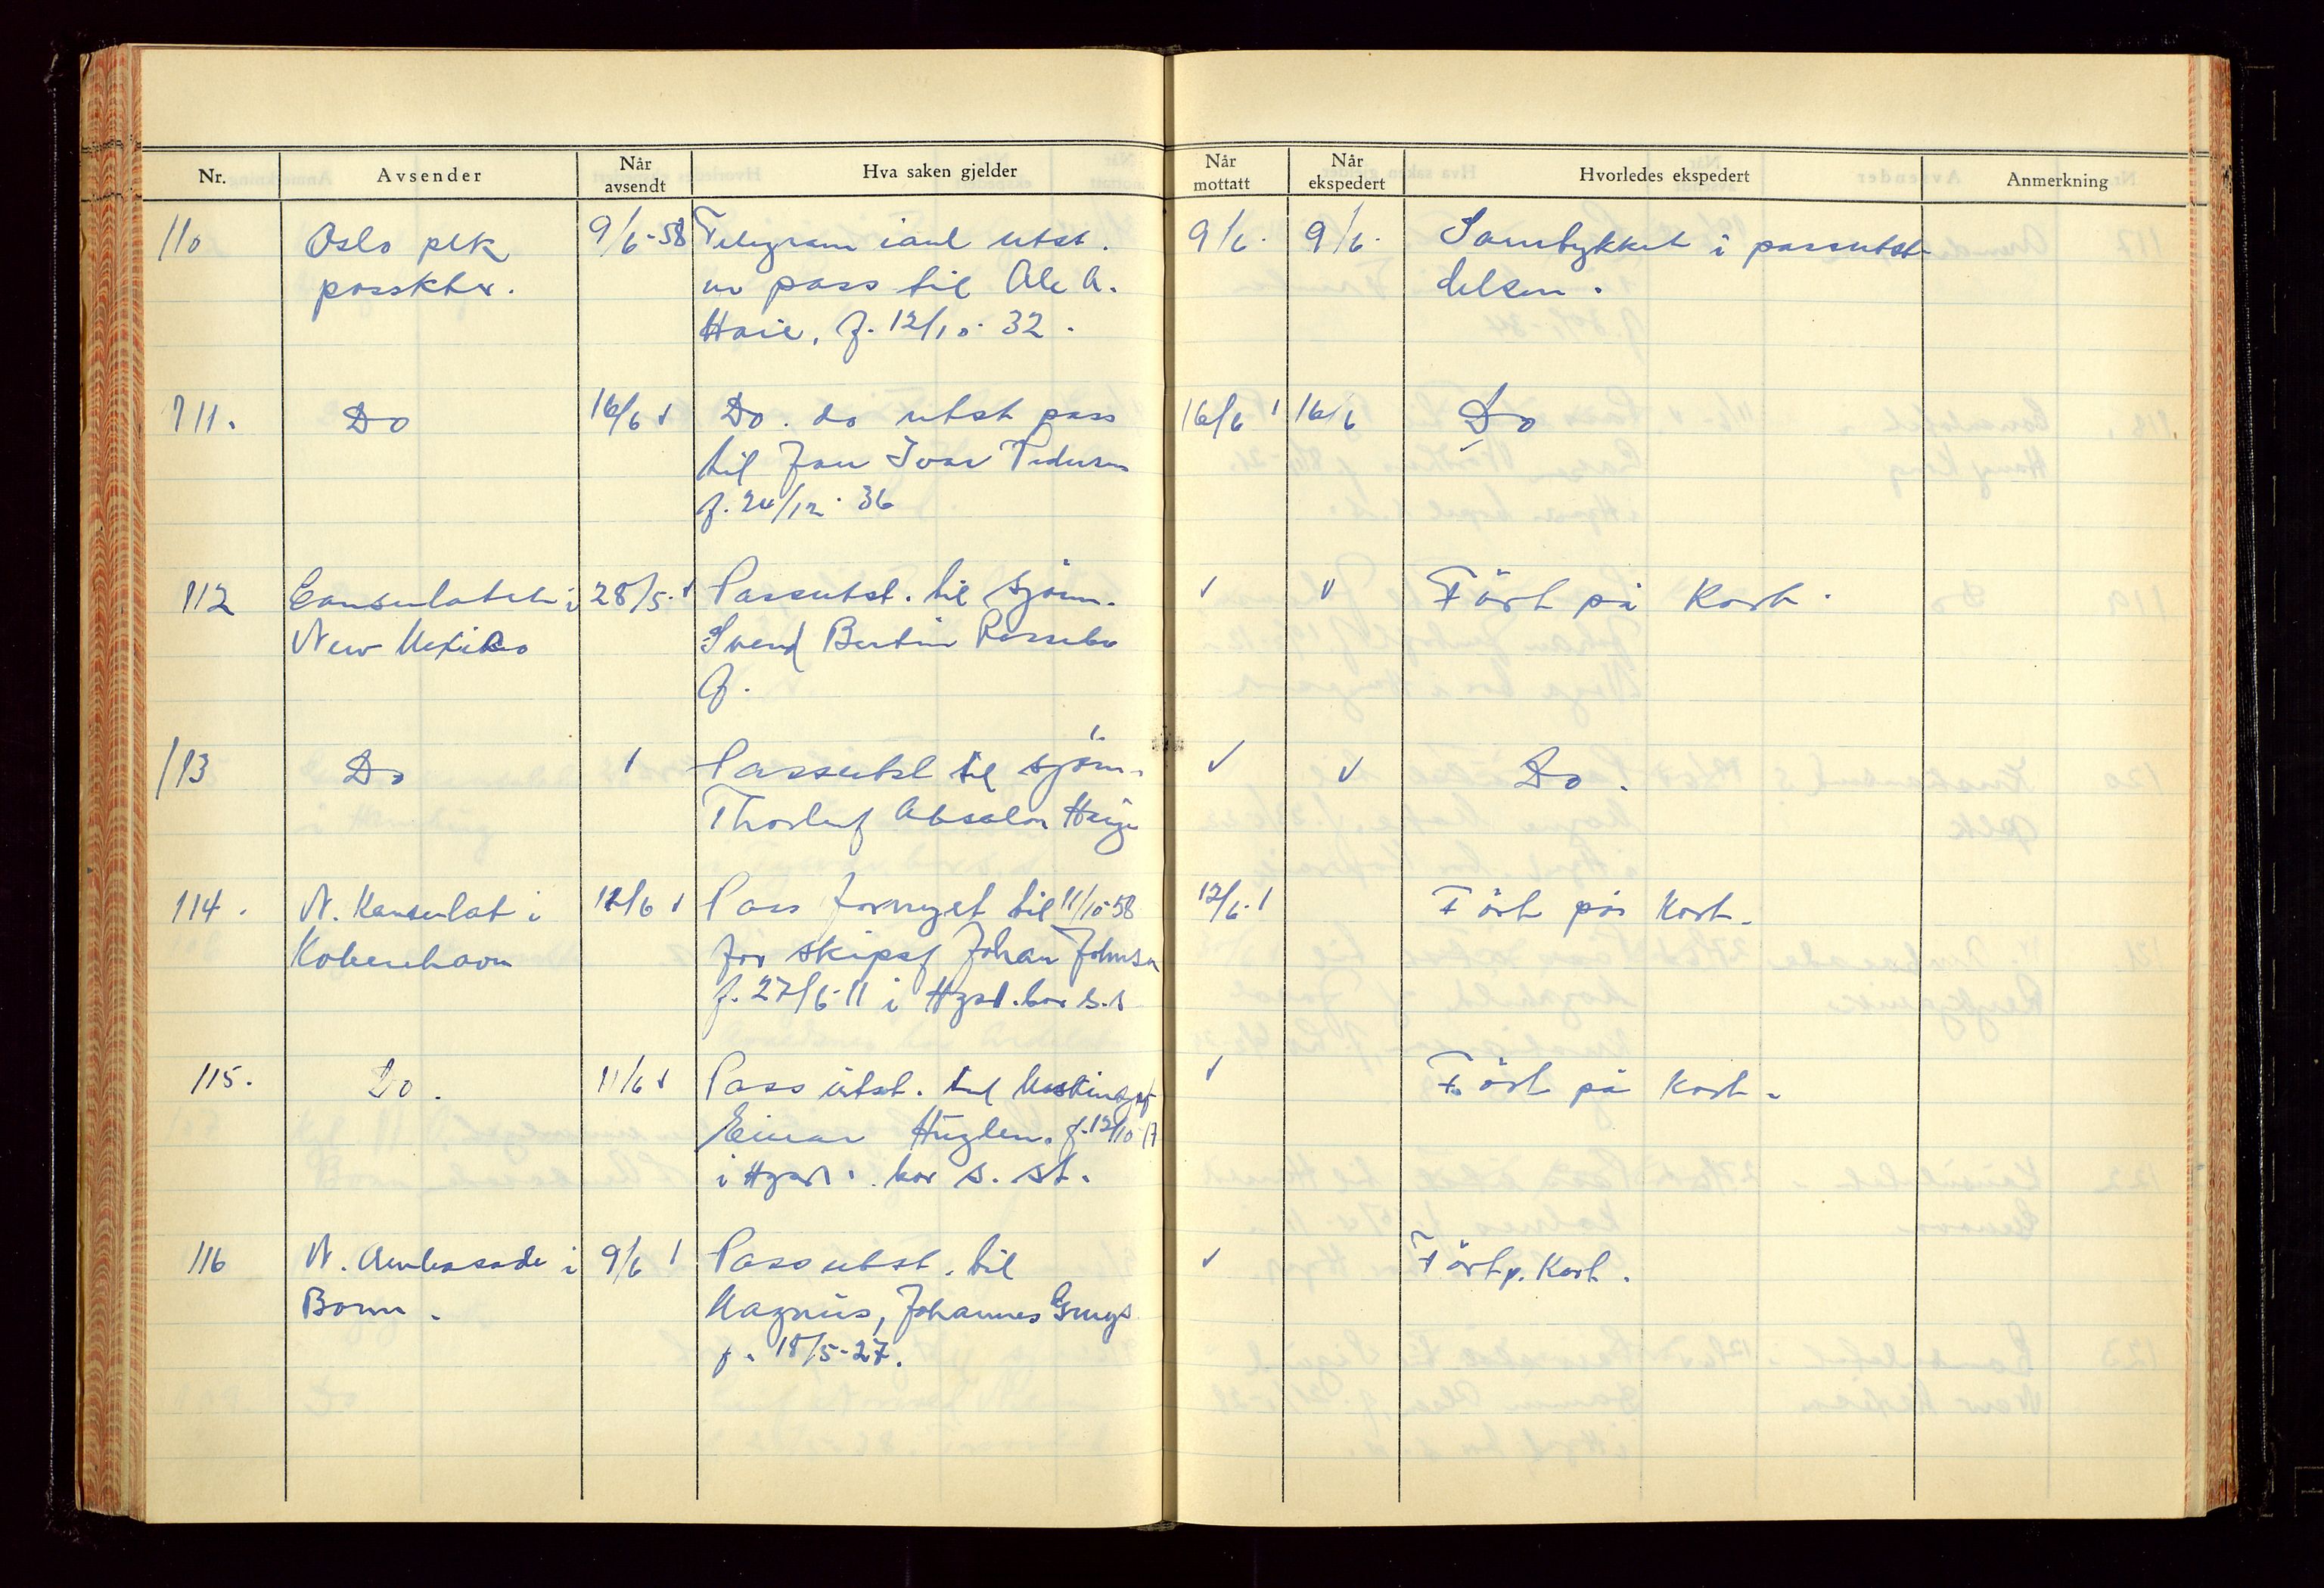 Nr. Avsender Når avsendt Hva saken gjelder Når mottatt Når ekspedert Hvorledes ekspedert Anmerkning
110 Oslo plk 9/6-58 Telegram utst. 9/6. 9/6. Samtykket i passutste-
passktr. pass til Ole A. delsen.
Haie, f. 12/10-32.
111. Do 16/6 Do. do utst pass 16/6 16/6 Do
til Jan Ivar Pedersen
f. 24/12-36
112 Consulatet i 28/5. Passutst. til sjøm. Ført på Kort.
New Mexico Svend Bertin
f.
113 Do Passutst til sjøm. Do.
Thorleif Absalon
114. N. Konsulat i 11/6 Pass fornyet til 11/10-58 12/6. Ført på Kort.
København for skipsf Johan Johnsen
f. 27/6-11 i Hgsd. bor s.s
115. Do. 11/6 Pass utst. til Maskinsjef Ført på Kort.
Einar Huglen. f. 12/10-17
i Hgsd. bor s. st.
116 N. Ambasade i 9/6 Passutst. til Ført p. Kort.
Bonn. Magnus, Johannes
f. 18/5-27.